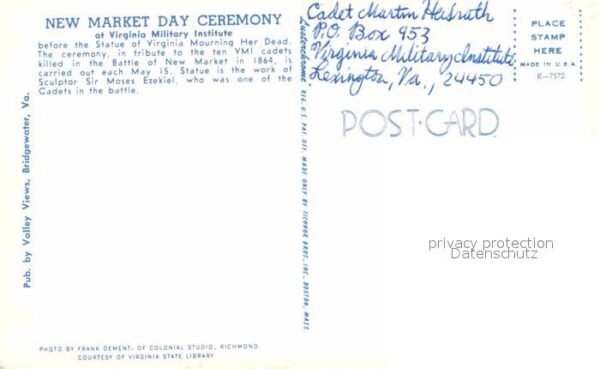 NEW MARKET DAY CEREMONY
at Virginia Military Institute
before the Statue of Virginia Mourning Her Dead.
The ceremony, in tribute to the ten VMI cadets
killed in the Battle of New Market in 1864, is
carried out each May 15. Statue is the work of
Sculptor Sir Moses Ezekiel, who was one of the
Cadets in the battle.
Pub. by Valley Views, Bridgewater, Va.
PHOTO BY FRANK DEMENTI OF COLONIAL STUDIO, RICHMOND
COURTESY OF VIRGINIA STATE LIBRARY
"Lusterchrome" REG. U.S. PAT. OFF. MADE ONLY BY TICHNOR BROS. INC., BOSTON, MASS.
Cadet Martin
P.O. Box 953
Virginia Military Institute
Lexington, Va., 24450
PLACE
STAMP
HERE
MADE IN U.S.A.
K-7572
POST-CARD
privacy protection
Datenschutz